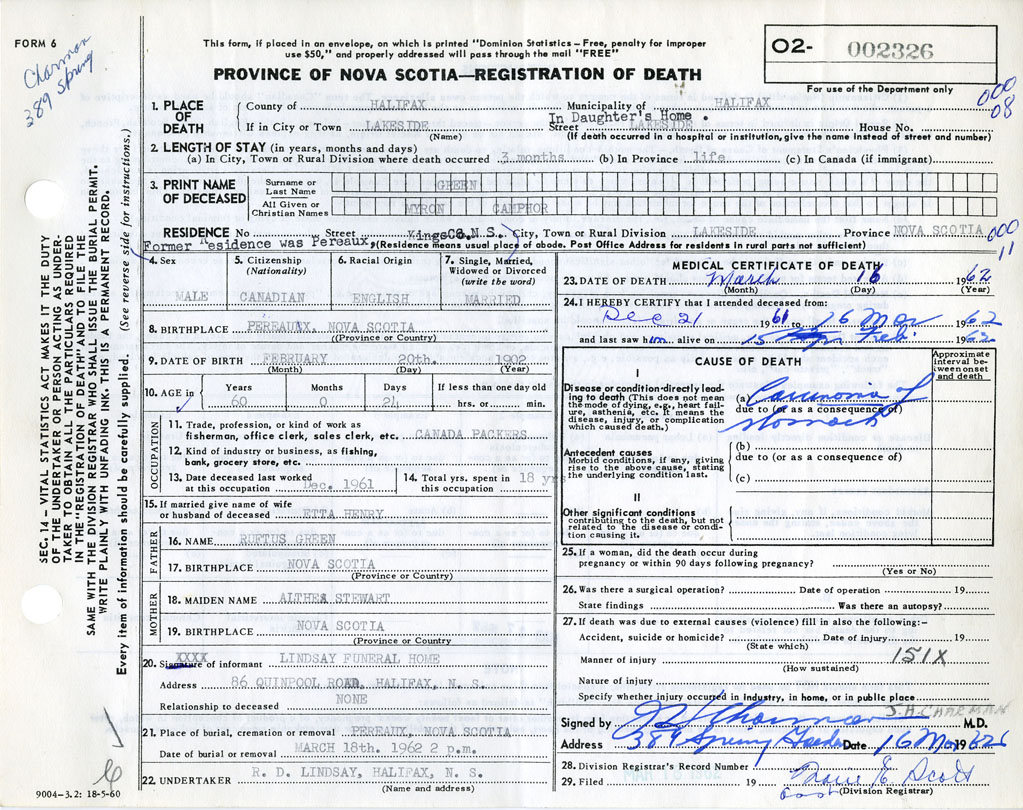 FORM 6
Charman
389 Spring
This form, if placed in an envelope, on which is printed "Dominion Statistics – Free, penalty for improper
use $50," and properly addressed will pass through the mail "FREE"
PROVINCE OF NOVA SCOTIA—REGISTRATION OF DEATH
O2- 002326
For use of the Department only
000
08
SEC. 14 – VITAL STATISTICS ACT MAKES IT THE DUTY
OF THE UNDERTAKER OR PERSON ACTING AS UNDER-
TAKER TO OBTAIN ALL THE PARTICULARS REQUIRED
IN THE "REGISTRATION OF DEATH" AND TO FILE THE
SAME WITH THE DIVISION REGISTRAR WHO SHALL ISSUE THE BURIAL PERMIT.
WRITE PLAINLY WITH UNFADING INK. THIS IS A PERMANENT RECORD.
Every item of information should be carefully supplied. (See reverse side for instructions.)
1. PLACE OF DEATH
County of HALIFAX Municipality of HALIFAX
In Daughter's Home.
If in City or Town LAKESIDE Street LAKESIDE House No.
(Name) (If death occurred in a hospital or institution, give the name instead of street and number)
2. LENGTH OF STAY (in years, months and days)
(a) In City, Town or Rural Division where death occurred 3 months (b) In Province life (c) In Canada (if immigrant)
3. PRINT NAME OF DECEASED
Surname or Last Name GREEN
All Given or Christian Names MYRON CAMPHOR
RESIDENCE No Street Kings Co. N.S. City, Town or Rural Division LAKESIDE Province NOVA SCOTIA
000
11
Former Residence was Pereaux, (Residence means usual place of abode. Post Office Address for residents in rural parts not sufficient)
4. Sex
MALE
5. Citizenship
(Nationality)
CANADIAN
6. Racial Origin
ENGLISH
7. Single, Married,
Widowed or Divorced
(write the word)
MARRIED
8. BIRTHPLACE PEREAUX, NOVA SCOTIA
(Province or Country)
9. DATE OF BIRTH FEBRUARY 20th. 1902
(Month) (Day) (Year)
10. AGE in
Years Months Days If less than one day old
60 0 24 hrs. or min.
OCCUPATION
11. Trade, profession, or kind of work as
fisherman, office clerk, sales clerk, etc. CANADA PACKERS
12. Kind of industry or business, as fishing,
bank, grocery store, etc.
13. Date deceased last worked
at this occupation Dec. 1961
14. Total yrs. spent in
this occupation 18 yrs
15. If married give name of wife
or husband of deceased ETTA HENRY
FATHER
16. NAME RUFTUS GREEN
17. BIRTHPLACE NOVA SCOTIA
(Province or Country)
MOTHER
18. MAIDEN NAME ALTHEA STEWART
19. BIRTHPLACE NOVA SCOTIA
(Province or Country)
XXXX
20. Signature of informant LINDSAY FUNERAL HOME
Address 86 QUINPOOL ROAD, HALIFAX, N. S.
Relationship to deceased NONE
21. Place of burial, cremation or removal PEREAUX, NOVA SCOTIA
Date of burial or removal MARCH 18th. 1962 2 p.m.
22. UNDERTAKER R. D. LINDSAY, HALIFAX, N. S.
(Name and address)
9004-3.2: 18-5-60
MEDICAL CERTIFICATE OF DEATH
23. DATE OF DEATH March 16 1962
(Month) (Day) (Year)
24. I HEREBY CERTIFY that I attended deceased from:
Dec 21 1961 to 16 Mar 1962
and last saw him alive on 15 Feb. 1962
CAUSE OF DEATH
Approximate interval between onset and death
I
Disease or condition directly lead-
ing to death (This does not mean
the mode of dying, e.g., heart fail-
ure, asthenia, etc. It means the
disease, injury, or complication
which caused death.)
(a) Carcinoma of
due to (or as a consequence of)
stomach
Antecedent causes
Morbid conditions, if any, giving
rise to the above cause, stating
the underlying condition last.
(b)
due to (or as a consequence of)
(c)
II
Other significant conditions
contributing to the death, but not
related to the disease or condi-
tion causing it.
25. If a woman, did the death occur during
pregnancy or within 90 days following pregnancy?
(Yes or No)
26. Was there a surgical operation? Date of operation 19
State findings Was there an autopsy?
27. If death was due to external causes (violence) fill in also the following:–
Accident, suicide or homicide? Date of injury 19
(State which)
Manner of injury 151X
(How sustained)
Nature of injury
Specify whether injury occurred in Industry, in home, or in public place
J.A. CHARMAN
Signed by M.D.
Address 389 Spring Garden Date 16 Mar 1962
28. Division Registrar's Record Number
29. Filed 19
(Division Registrar)